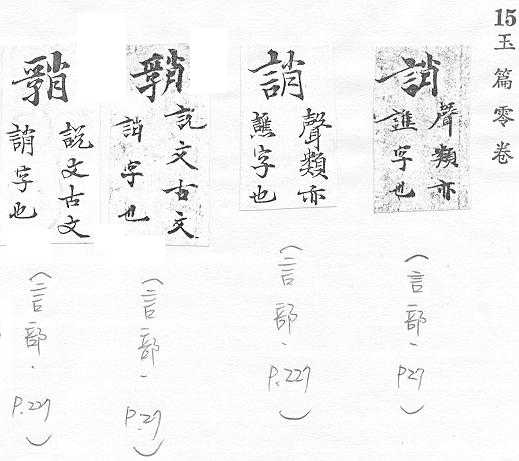 15玉篇零卷
誚
聲類亦
譙字也
(言部.P27)
誚
聲類亦
譙字也
(言部.P.227)
說文古文
誚字也
(言部.P.27)
說文古文
誚字也
(言部.P.227)